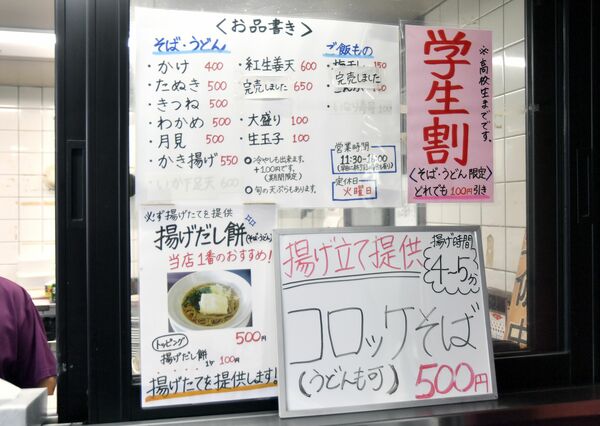 〈お品書き〉
そば・うどん
かけ 400
たぬき 500
きつね 500
わかめ 500
月見 500
かき揚げ 550
いか下足天 600
紅生姜天 600
完売しました 650
大盛り 100
生玉子 100
◎冷やしも出来ます。
+100円です。
(期間限定)
◎旬の天ぷらもあります。
ご飯もの
梅干し 150
完売しました
いなり寿司 100
営業時間
11:30-16:00
定休日
火曜日
学生割
※高校生までです。
〈そば・うどん限定〉
どれでも100円引き
必ず揚げたてを提供
揚げだし餅(そば・うどん)
当店1番のおすすめ!
500円
トッピング
揚げだし餅
1ケ 100円
揚げたてを提供します!
揚げ立て提供
揚げ時間
4~5分
コロッケそば
(うどんも可)
500円